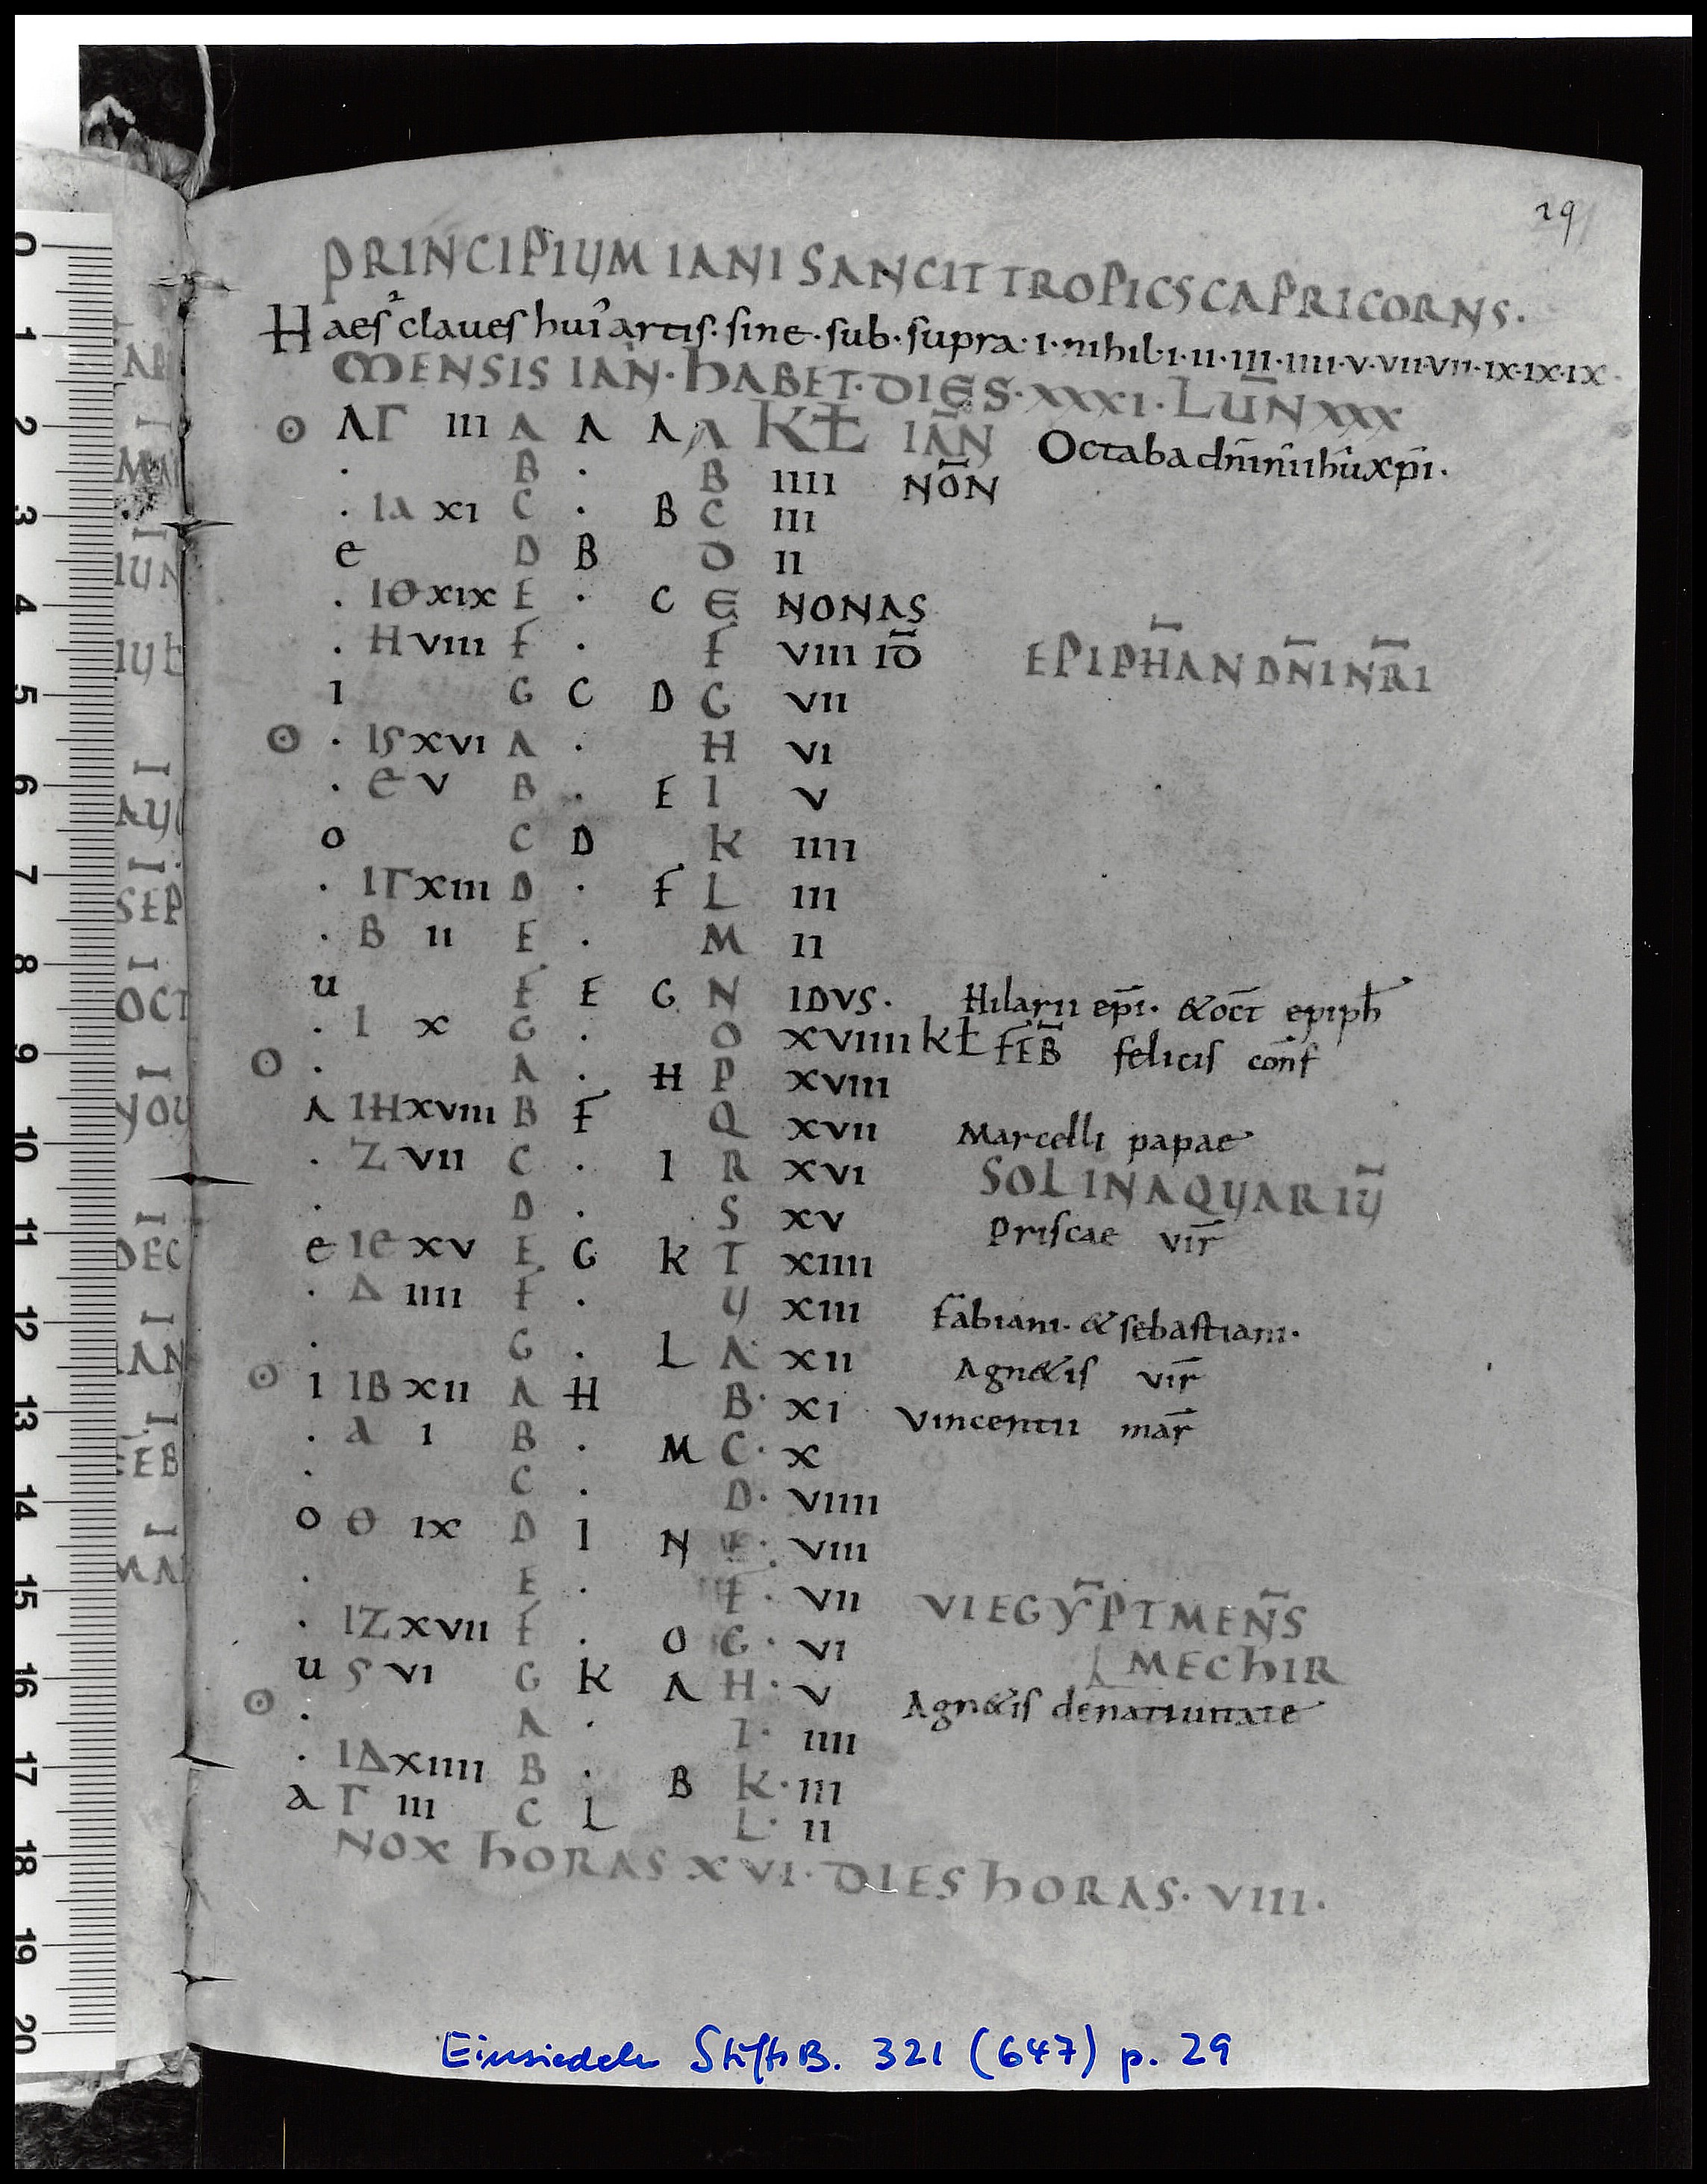 29
PRINCIPIUM IANI SANCIT TROPICS CAPRICORNS.
Haes claues hui' artis. sine. sub. supra. I. nihil. I. II. III. IIII. V. VII. VII. IX. IX. IX.
MENSIS IAN̄. HABET. DIES. XXXI. LUN̄ XXX
ʘ Λ Γ III A A A A KŁ IAN̄ Octaba dn̄i nr̄i ih̄u xp̄i.
. B . B IIII NON̄
. IA XI C . B C III
e D B D II
. IΘ XIX E . C E NONAS
. H VIII F . F VIII ID̄ EPIPH̄AN DN̄I NR̄I
I G C D G VII
ʘ . IS XVI A . H VI
. e V B . E I V
O C D K IIII
. IΓ XIII D . F L III
. B II E . M II
u F E G N IDVS. Hilarii ep̄i. & oct̄ epiph̄
. I X G . O XVIIII KŁ FEB̄ felicis conf̄
ʘ . A . H P XVIII
A IH XVIII B F Q XVII Marcelli papae
. Z VII C . I R XVI SOL IN AQUARIŪ
. D . S XV Priscae vir̄
e Ie XV E G K T XIIII
. Δ IIII F . U XIII Fabiani. & sebastiani.
. G . L A· XII Agn&is vir̄
ʘ I IB XII A H B· XI Vincentii mar̄
. a I B . M C· X
. C . D· VIIII
O Θ IX D I N E· VIII
. E . F· VII VI EGYP̄T MEN̄S
. IZ XVII F . O G· VI MECHIR
u S VI G K A H· V Agn&is de natiuitate
ʘ . A . I· IIII
. IΔ XIIII B . B K· III
a Γ III C L L· II
NOX HORAS XVI. DIES HORAS. VIII.
Einsiedeln StiftsB. 321 (647) p. 29
IUN
SEP
OCT
NOU
DEC
IAN
FEB
0
1
2
3
4
5
6
7
8
9
10
11
12
13
14
15
16
17
18
19
20